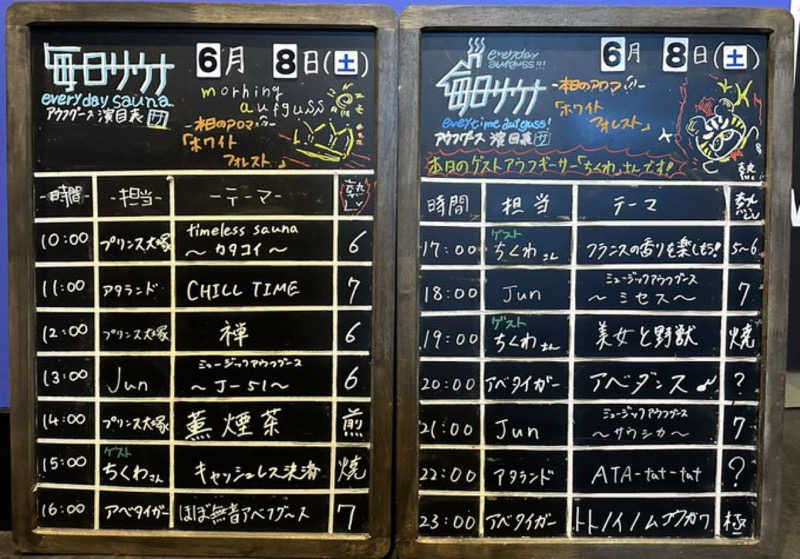 毎日サウナ
everyday sauna
アウフグース 演目表 サ
6月 8日(土)
morning aufguss
-本日のアロマ-
「ホワイト
フォレスト」
-時間- -担当- -テーマ- 熱レベ
10:00 プリンス大塚 timeless sauna ～カタコイ～ 6
11:00 アタランド CHILL TIME 7
12:00 プリンス大塚 禅 6
13:00 Jun ミュージックアウフグース ～J-51～ 6
14:00 プリンス大塚 薫煙茶 煎
15:00 ゲスト ちくわさん キャッシュレス決済 焼
16:00 アベタイガー ほぼ無音アベフグース 7
毎日サウナ
everyday aufguss!!!
6月 8日(土)
-本日のアロマ-
「ホワイト
フォレスト」
everytime aufguss!
アウフグース 演目表 サ
本日のゲストアウフギーサー「ちくわ」さんです!
熱!
時間 担当 テーマ 熱レベ
17:00 ゲスト ちくわさん フランスの香りを楽しもう!! 5~6
18:00 Jun ミュージックアウフグース ～ミセス～ 7
19:00 ゲスト ちくわさん 美女と野獣 焼
20:00 アベタイガー アベダンス♪ ?
21:00 Jun ミュージックアウフグース ～サウシカ～ 7
22:00 アタランド ATA-tat-tat ?
23:00 アベタイガー トトノイノムコウガワ 極